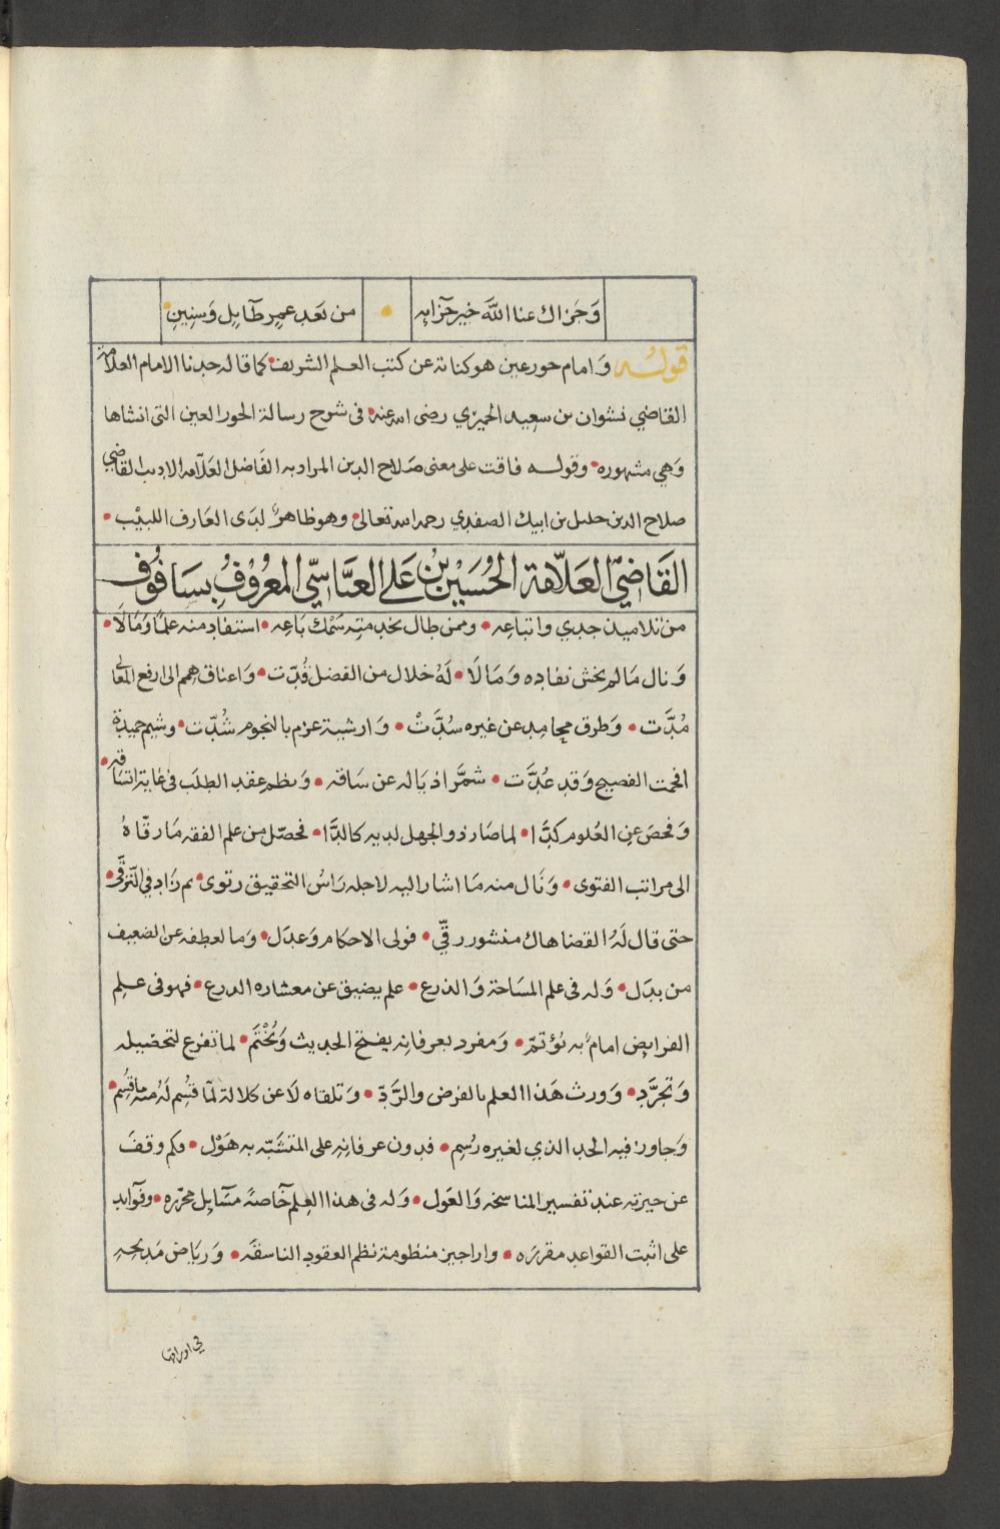 وَجَزاك عنا اللَّهَ خير جَزايِه • من بَعَد عمرٍ طَايِلٍ وَسنِينِ
قولـه وَامام حور عين هو كناية عن كتب العلم الشريف • كما قاله جدنا الامام العلامة
القاضي نشوان بن سعيد الحميري رضى الله عنه • فى شرح رسالة الحور العين التى انشاها
وَهي مشهوره • وقولـه فاقت على معنى صَلاح الدين المراد به الفَاضل العَلاّمه الاديب القاضي
صلاح الدين خليل بن ايبك الصفدي رحمه الله تعالى • وهو ظاهرٌ لَدَى العَارف اللبيْب •
القَاضِيّ العَلاّمة الحُسَيْن بْن عَلي العبَّاسيّ المعرُوفُ بسَافُوف
من تلاميذ جدي واتباعه • وممن طال بخدمته سَمْك بَاعِه • استفاد منه علمًا وَمَالاَ •
وَنال مَا لم يخش نفاده وَمَالاَ • لَهُ خلال من الفضل قُدّت • وَاعناق همم الى ارفع المعَالي
مُدَّت • وَطرق محامِد عن غيره سُدَّتْ • وَارشية عزم بالنجوم شُدّت • وشيم حميدة
افحمت الفصيح وَقد عُدَّت • شمَّر اذيَاله عن سَاقه • وَنظم عقد الطلَب فى غاية اتسَاقه •
وَفحصَ عن العُلوم كدَّا • لما صَار ذو الجهل لديه كالدَّا • فحصّل من علم الفقه مَا رقّاهُ
الى مراتب الفتوى • وَنَال منه مَا اشار اليه لاجله رَاسُ التحقيق رتوى • ثم زَاد في التّرقّي •
حتى قال لَهُ القضا هاك منشور رقّي • فولى الاحكام وَعدَل • وَما لعطفه عن الضعيف
من بدَل • وَله فى علم المسَاحة وَالذرع • علم يضيق عن معشاره الدرع • فهو فى علم
الفرايض امامٌ به يُؤتمّ • وَمفرد بعرفانِه يفتح الحديث وَيُخْتَم • لما تفرع لتحصيله
وَتجرَّد • وَورث هَذا العلم بالفرض والرَّدّ • وَتلقاه لاَ عن كلالة لمّا قسُم لَهُ منه ما قُسِم •
وَجاوز فيه الحد الذي لغيره رُسِم • فدون عرفانِه على المتشَبّه به هَوْل • وكم وقفَ
عن حيرته عند تفسير المناسخه وَالعَول • وَله فى هذا العِلم خَاصةً مسَايل محرّره • وفَوَايد
على اثبت القواعد مقرَره • واراجيز منظومة نظم العقود الناسقَه • وَريَاض مَديحه
في اوراقها